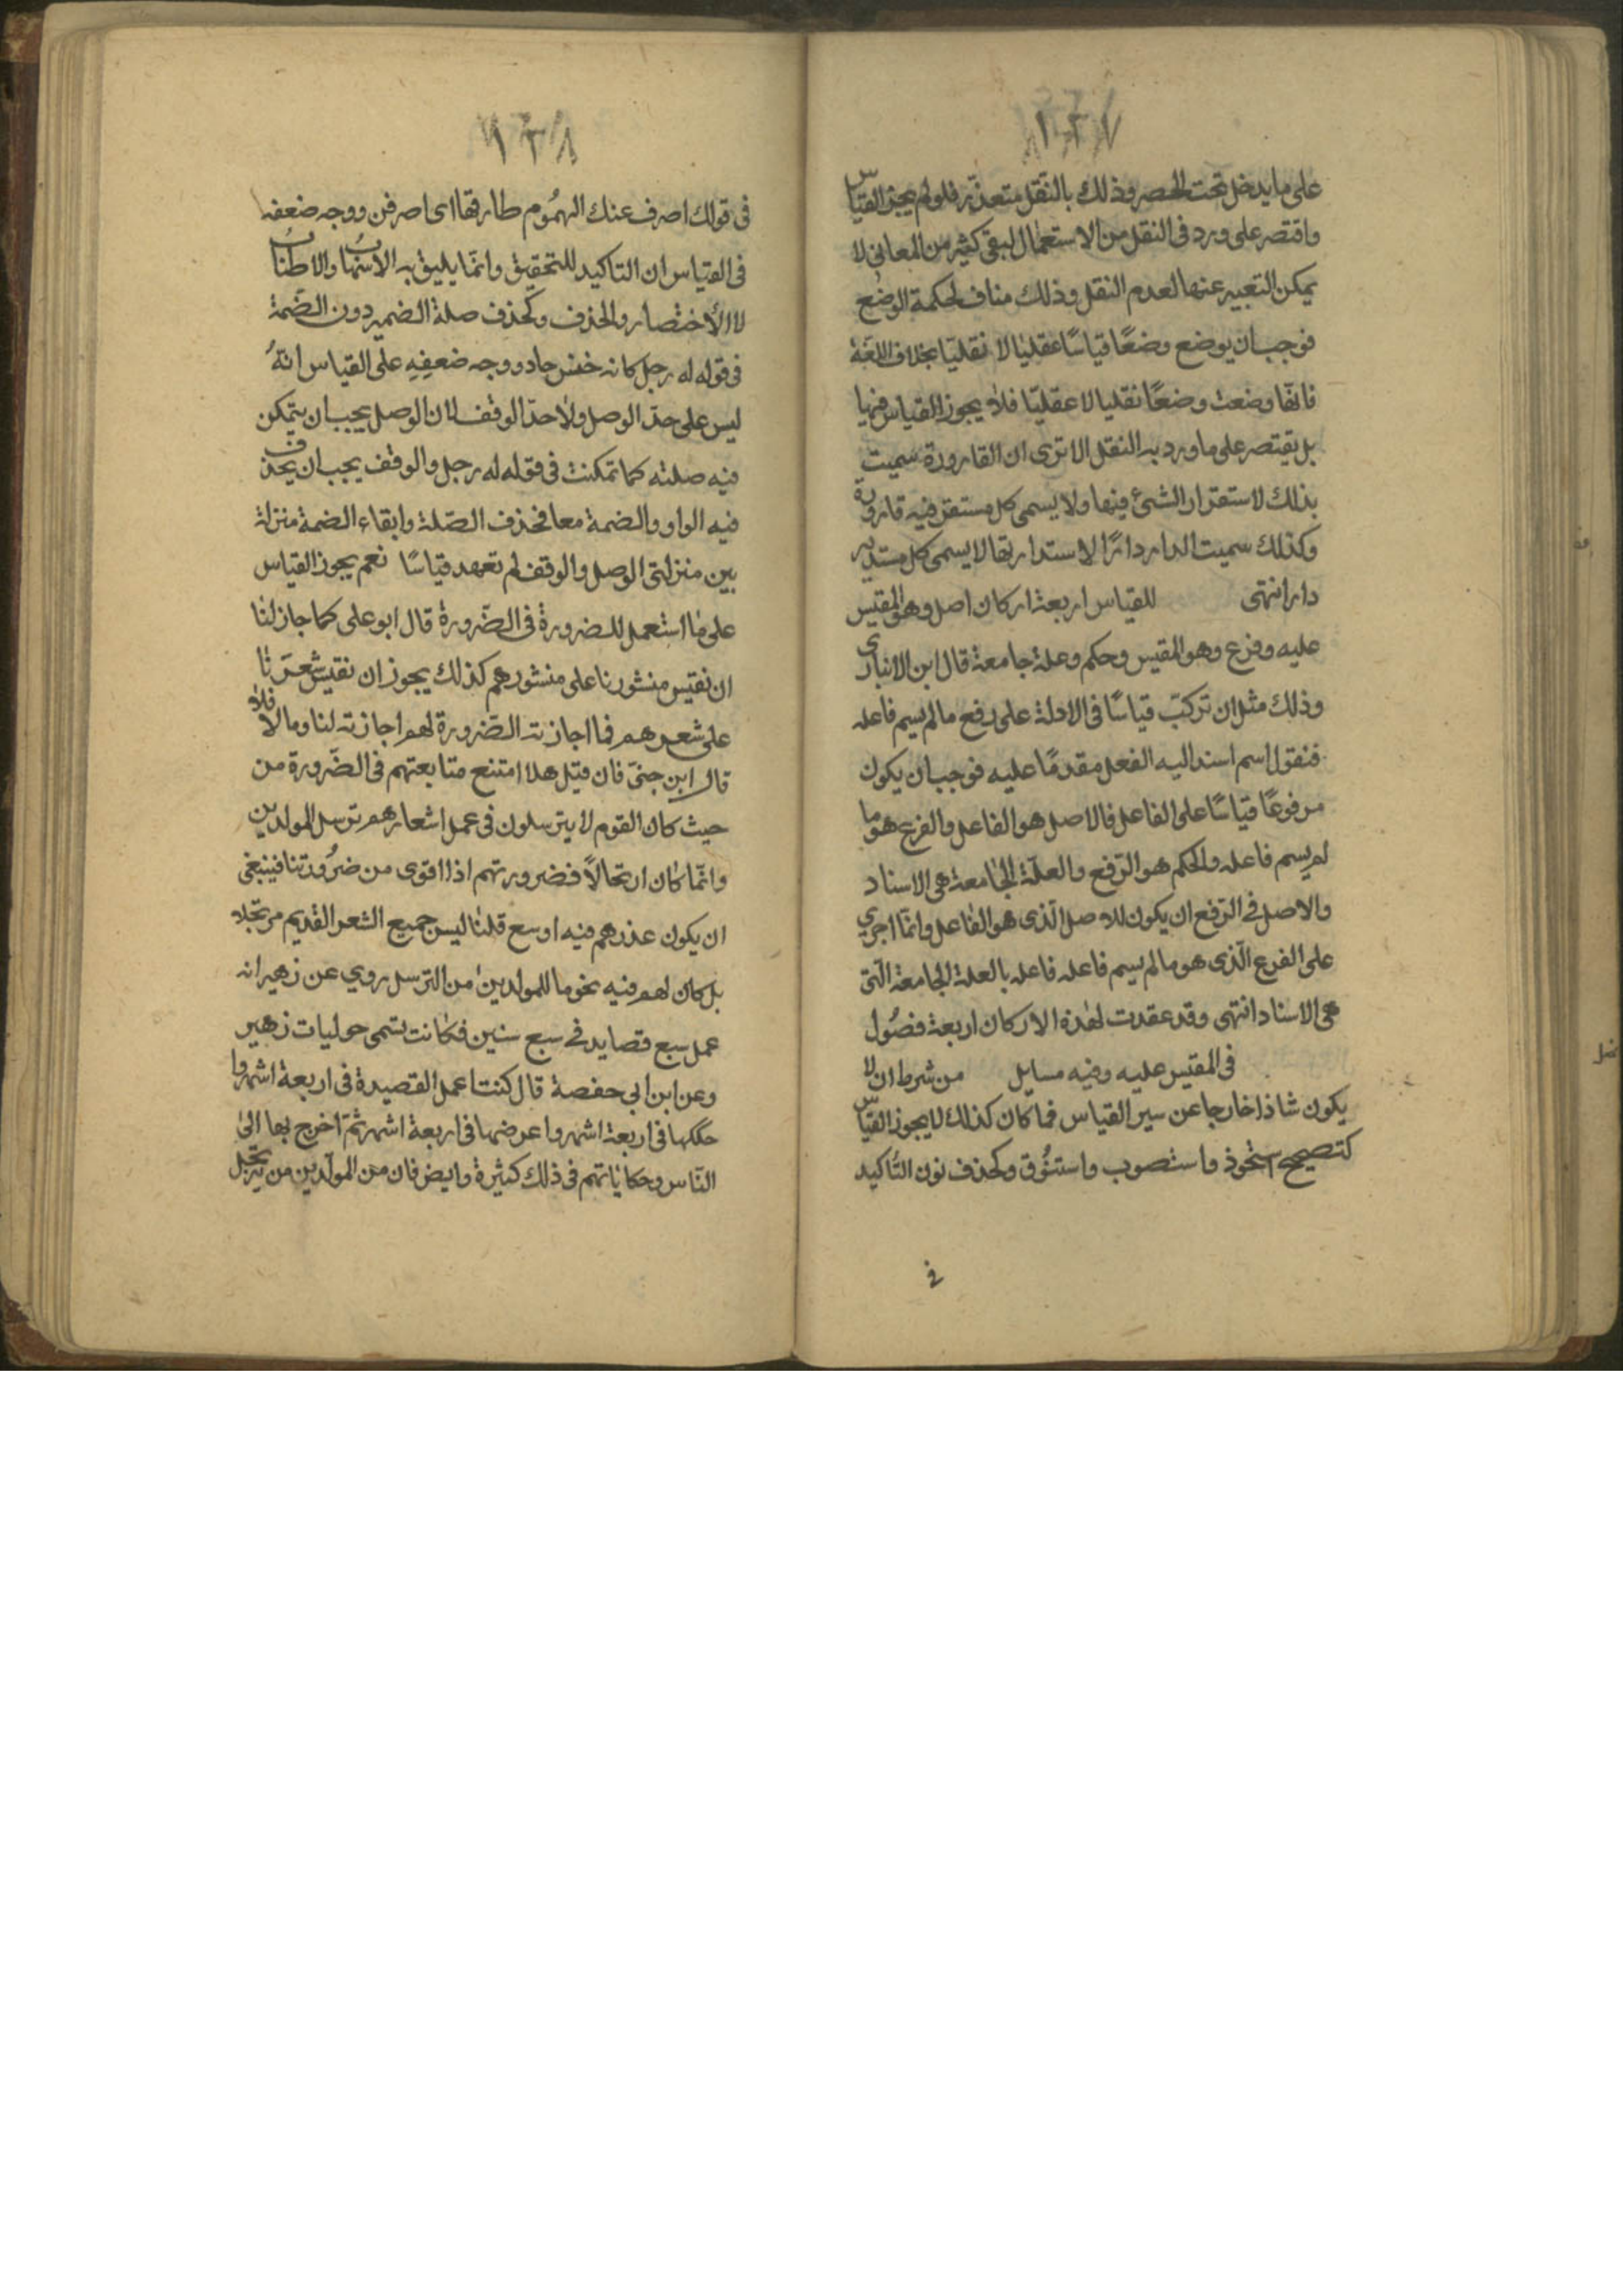 ١٣٧
على ما يدخل تحت الحصر وذلك بالنقل متعذر فلو لم يجز القياس
واقتصر على ورد فى النقل من الاستعمال لبقى كثير من المعانى لا
يمكن التعبير عنها لعدم النقل وذلك مناف لحكمة الوضع
فوجب ان يوضع وضعًا قياسًا عقليا لا نقليا بخلاف اللغة
فانها وضعت وضعًا نقليا لا عقليا فلا يجوز القياس فيها
بل يقتصر على ما ورد به النقل الا ترى ان القارورة سميت
بذلك لاستقرار الشئ فيها ولا يسمى كل مستقر فيه قارورة
وكذلك سميت الدار دارًا لاستدارتها لا يسمى كل مستدير
دارا انتهى للقياس اربعة اركان اصل وهو المقيس
عليه وفرع وهو المقيس وحكم وعلة جامعة قال ابن الانبارى
وذلك مثل ان تركب قياسًا فى الادلة على رفع ما لم يسم فاعله
فنقول اسم اسند اليه الفعل مقدمًا عليه فوجب ان يكون
مرفوعًا قياسًا على الفاعل فالاصل هو الفاعل والفرع هو ما
لم يسم فاعله والحكم هو الرّفع والعلّة الجامعة هى الاسناد
والاصل فى الرّفع ان يكون للاصل الّذى هو الفاعل وانّما اجرى
على الفرع الّذى هو ما لم يسم فاعله فاعله بالعلة الجامعة الّتى
هى الاسناد انتهى وقد عقدت لهذه الاركان اربعة فصُول
فى المقيس عليه وفيه مسايل من شرط ان لا
يكون شاذا خارجا عن سير القياس فما كان كذلك لا يجوز القياس
كتصحيح استحوذ واستصوب واستنوق وكحذف نون التاكيد
فى
١٣٨
فى قولك اصرف عنك الهمُوم طارقها اى اصرفن ووجه ضعفه
فى القياس ان التاكيد للتحقيق وانّما يليق به الاسهاب والاطناب
لا الأختصار والحذف وكحذف صلة الضمير دون الضّمة
فى قوله له رجل كانه خفس حاد ووجه ضعفِهِ على القياس انّهُ
ليس على حدّ الوصل ولا حدّ الوقف لان الوصل يجب ان يتمكن
فيه صلته كما تمكنت فى قوله له رجل والوقف يجب ان يحذف
فيه الواو والضمة معا فحذف الصّلة وابقاء الضمة منزلة
بين منزلتى الوصل والوقف لم تعهد قياسًا نعم يجوز القياس
على ما استعمل للضرورة فى الضّرورة قال ابو على كما جاز لنا
ان نقيس منثورنا على منثورهم كذلك يجوز ان نقيس شعرنا
على شعرهم فما اجازته الضّرورة لهم اجازته لنا وما لا فلا
قال ابن جنىّ فان قيل هلا امتنع متابعتهم فى الضّرورة من
حيث كان القوم لا يترسلون فى عمل اشعارهم ترسل المولدين
وانّما كان ارتحالاً فضرورتهم اذا اقوى من ضرُورتنا فينبغى
ان يكون عذرهم فيه اوسع قلنا ليس جميع الشعر القديم مرتجلا
بل كان لهم فيه نحو ما للمولدين من الترسل روي عن زهير انه
عمل سبع قصايد فى سبع سنين فكانت تسمى حوليات زهير
وعن ابن ابى حفصة قال كنت اعمل القصيدة فى اربعة اشهر وا
حككها فى اربعة اشهر واعرضها فى اربعة اشهر ثمّ اخرج بها الى
النّاس وحكاياتهم فى ذلك كثيرة وايض فان من المولّدين من يرتجل